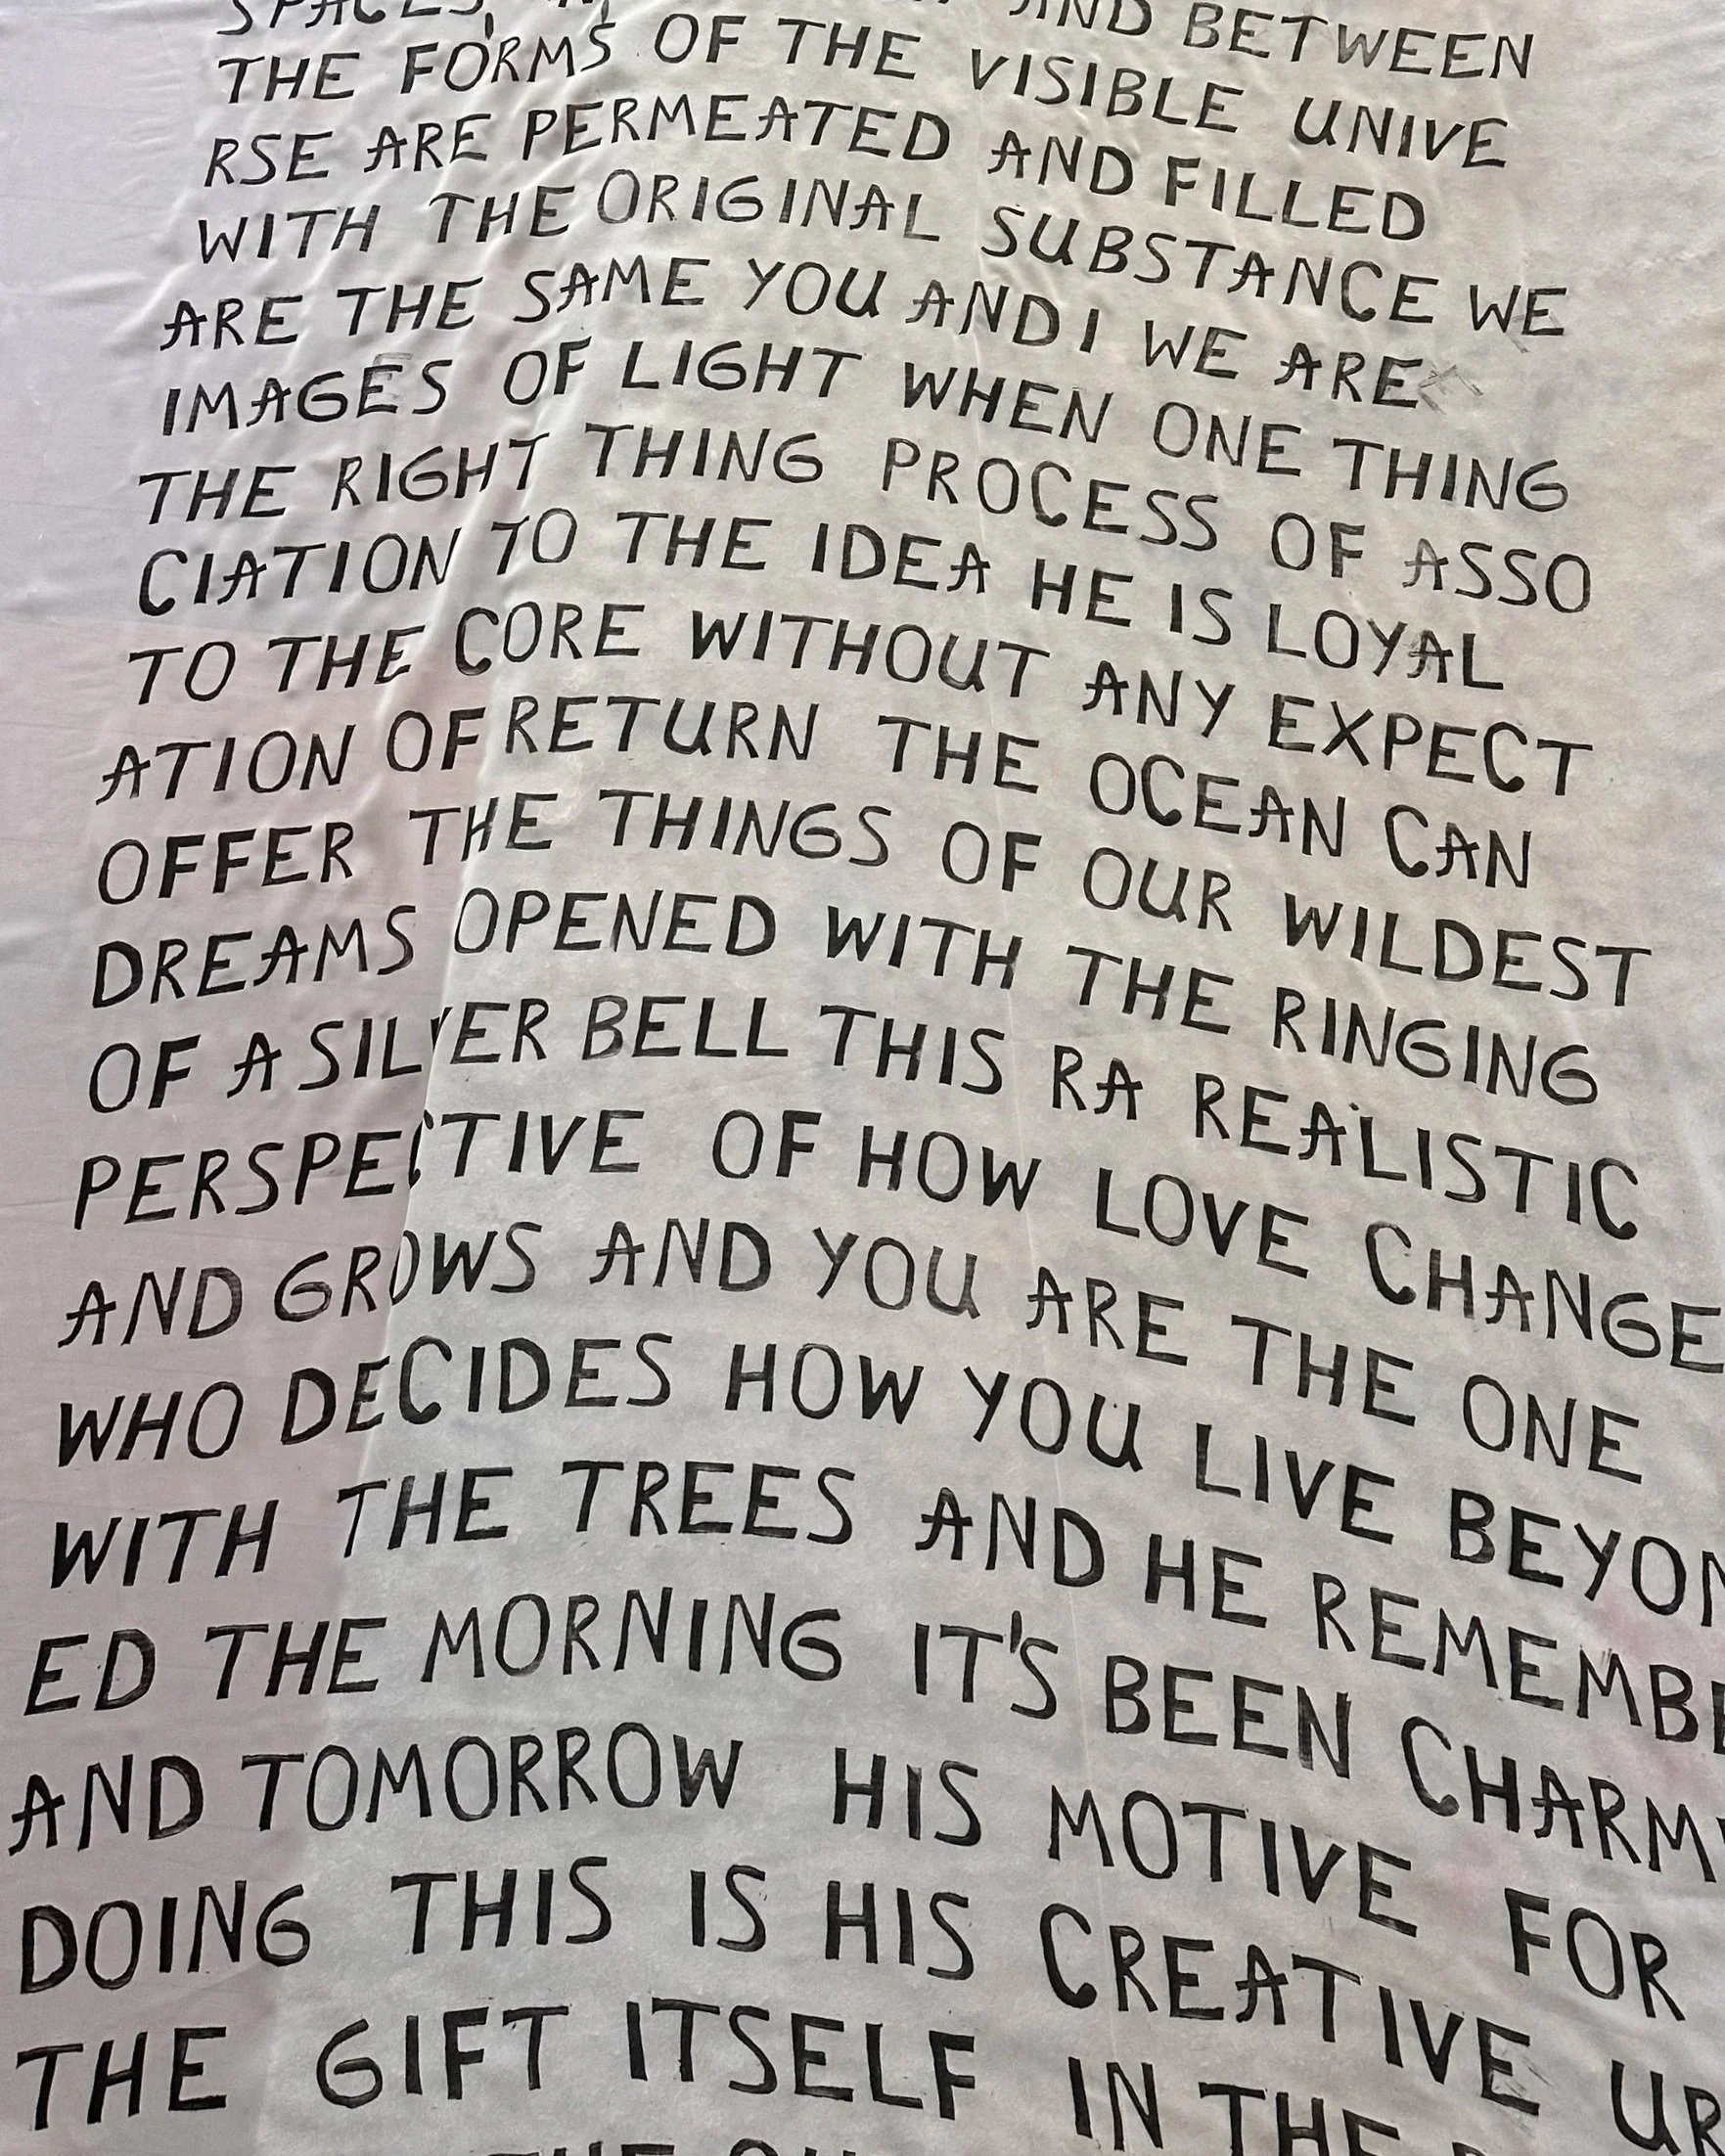 SPACES, AND BETWEEN
THE FORMS OF THE VISIBLE UNIVE
RSE ARE PERMEATED AND FILLED
WITH THE ORIGINAL SUBSTANCE WE
ARE THE SAME YOU AND I WE ARE
IMAGES OF LIGHT WHEN ONE THING
THE RIGHT THING PROCESS OF ASSO
CIATION TO THE IDEA HE IS LOYAL
TO THE CORE WITHOUT ANY EXPECT
ATION OF RETURN THE OCEAN CAN
OFFER THE THINGS OF OUR WILDEST
DREAMS OPENED WITH THE RINGING
OF A SILVER BELL THIS RA REALISTIC
PERSPECTIVE OF HOW LOVE CHANGE
AND GROWS AND YOU ARE THE ONE
WHO DECIDES HOW YOU LIVE BEYON
WITH THE TREES AND HE REMEMBE
ED THE MORNING IT'S BEEN CHARM
AND TOMORROW HIS MOTIVE FOR
DOING THIS IS HIS CREATIVE UR
THE GIFT ITSELF IN THE
THE